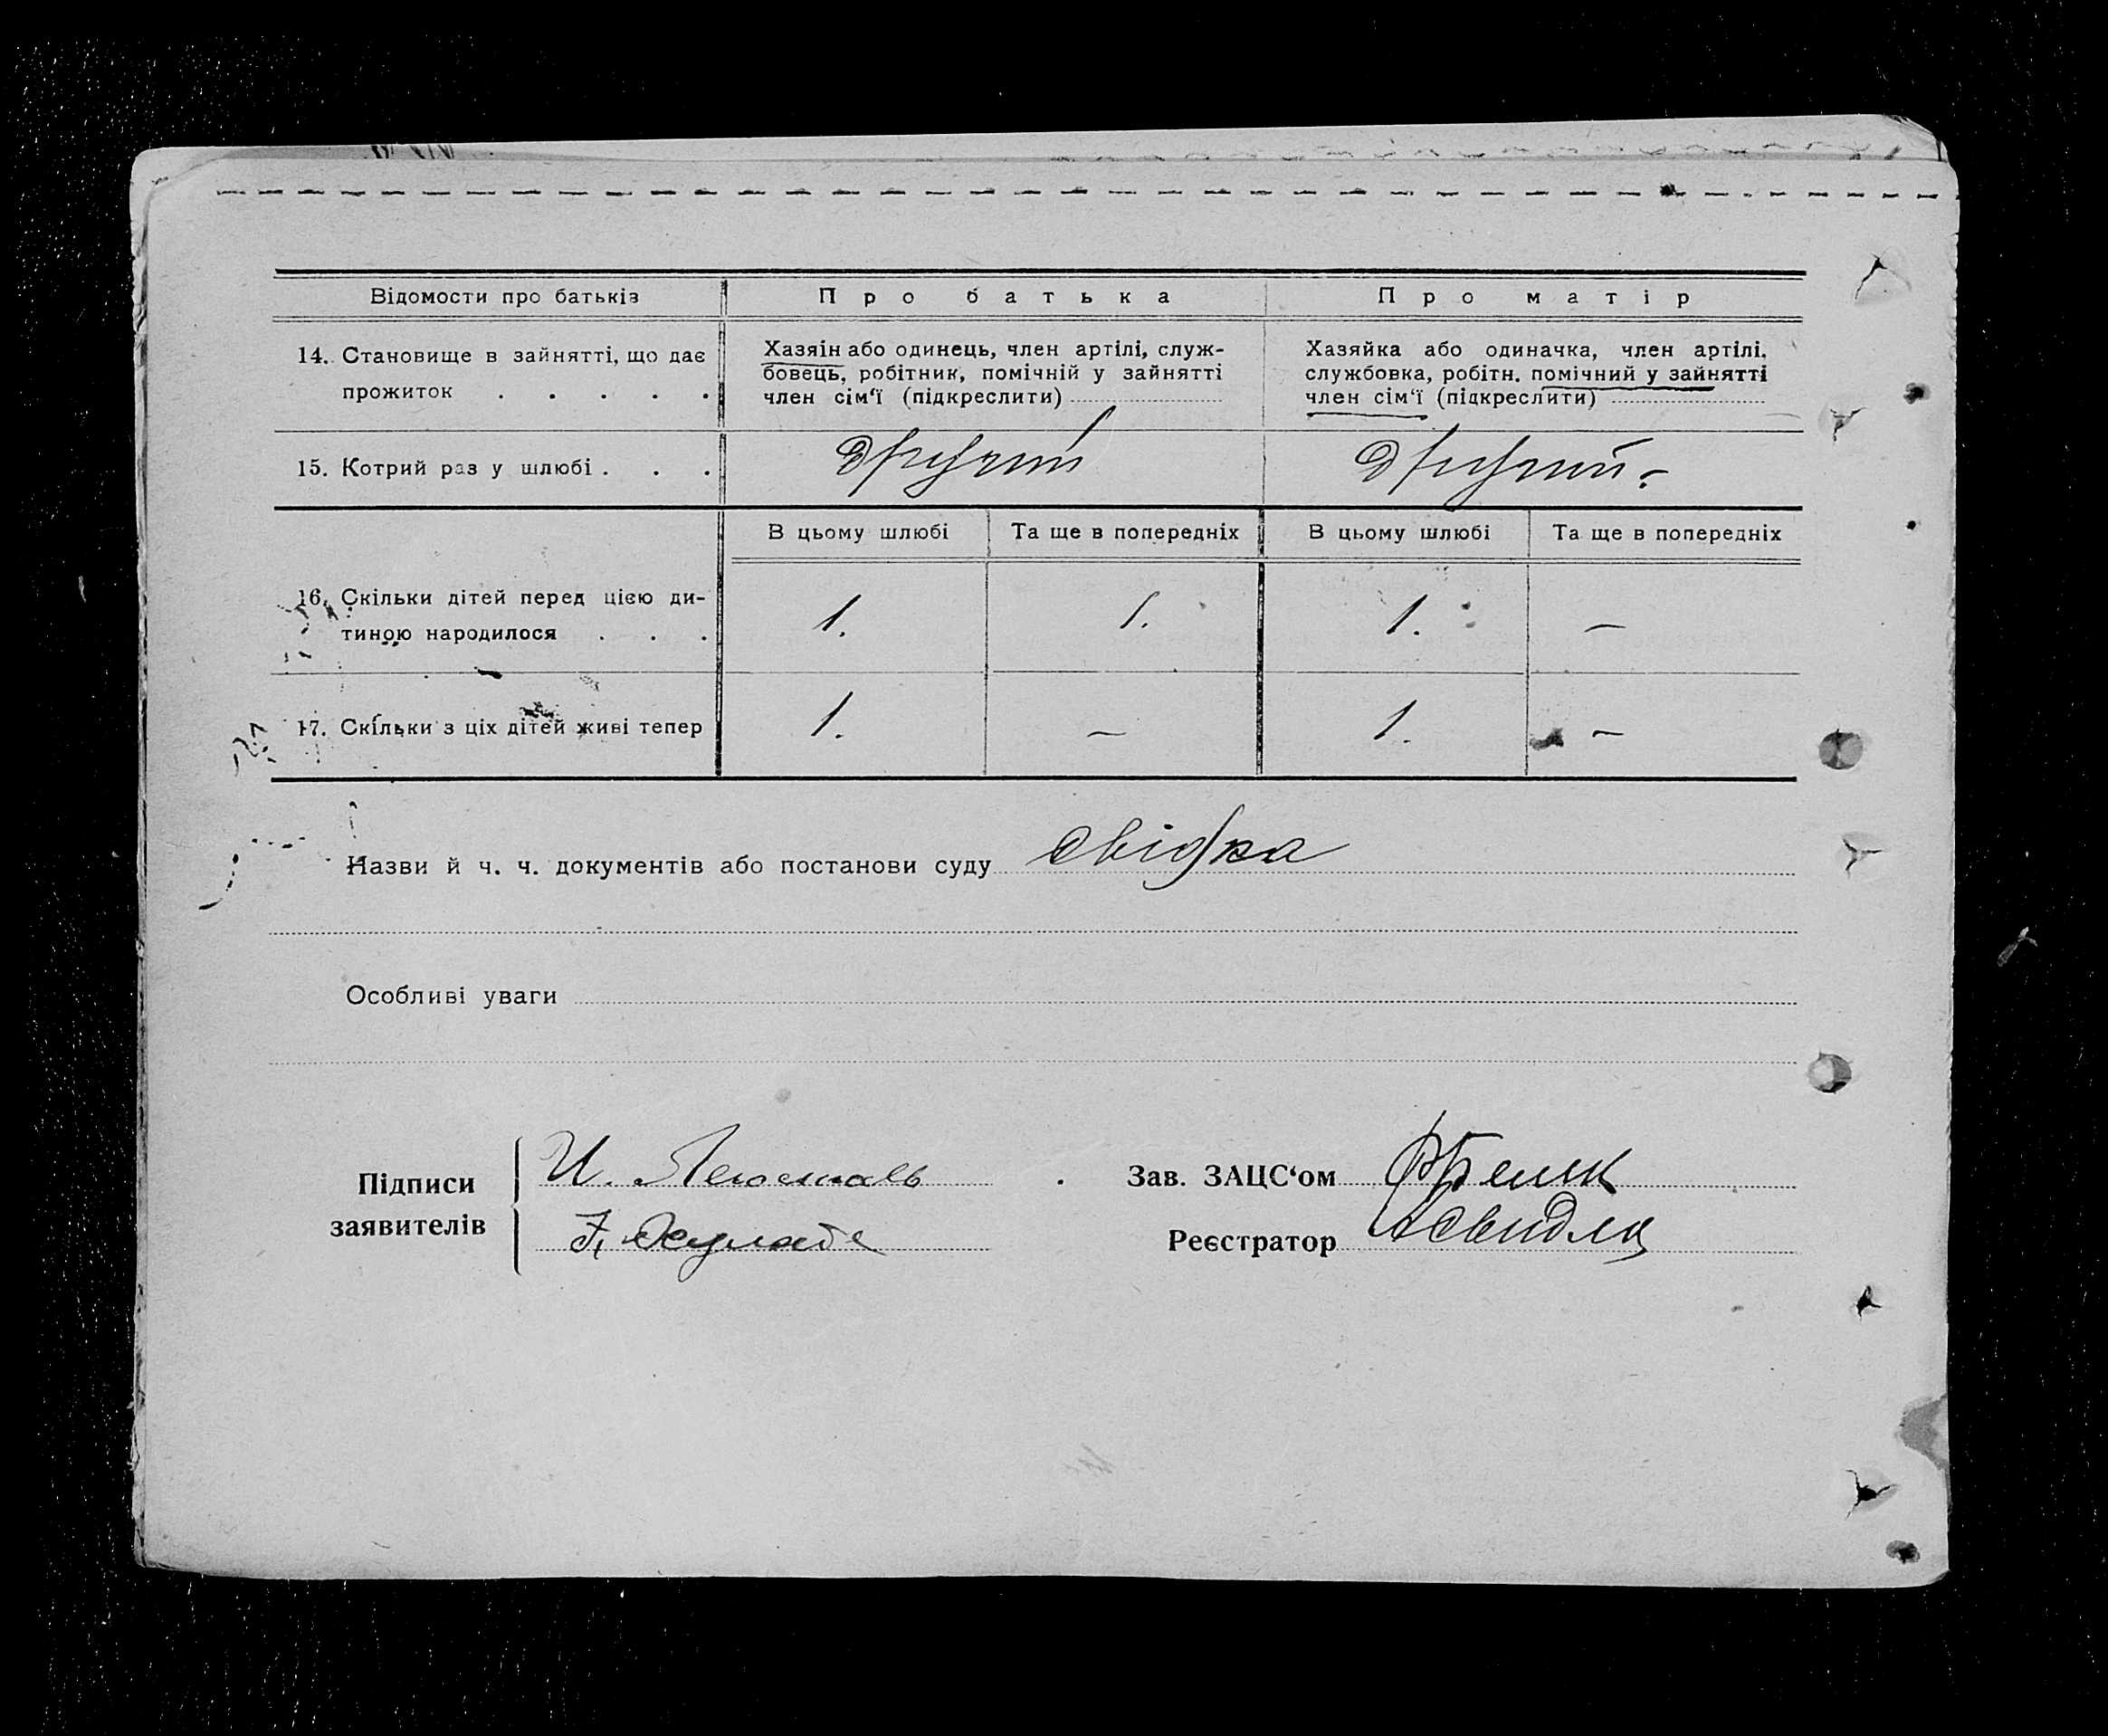 Відомости про батьків
Про батька
Про матір
14. Становище в зайнятті, що дає
прожиток . . . . .
Хазяін або одинець, член артілі, служ-
бовець, робітник, помічній у зайнятті
член сім‘ї (підкреслити)
Хазяйка або одиначка, член артілі,
службовка, робітн. помічний у зайнятті
член сім‘ї (підкреслити)
15. Котрий раз у шлюбі . . .
другий
другий
В цьому шлюбі
Та ще в попередніх
В цьому шлюбі
Та ще в попередніх
16. Скільки дітей перед цією ди-
тиною народилося . . .
1.
1.
1.
—
17. Скільки з ціх дітей живі тепер
1.
—
1.
—
Назви й ч. ч. документів або постанови суду
Особливі уваги
Підписи
заявителів
И.
Зав. ЗАЦС‘ом
Реєстратор